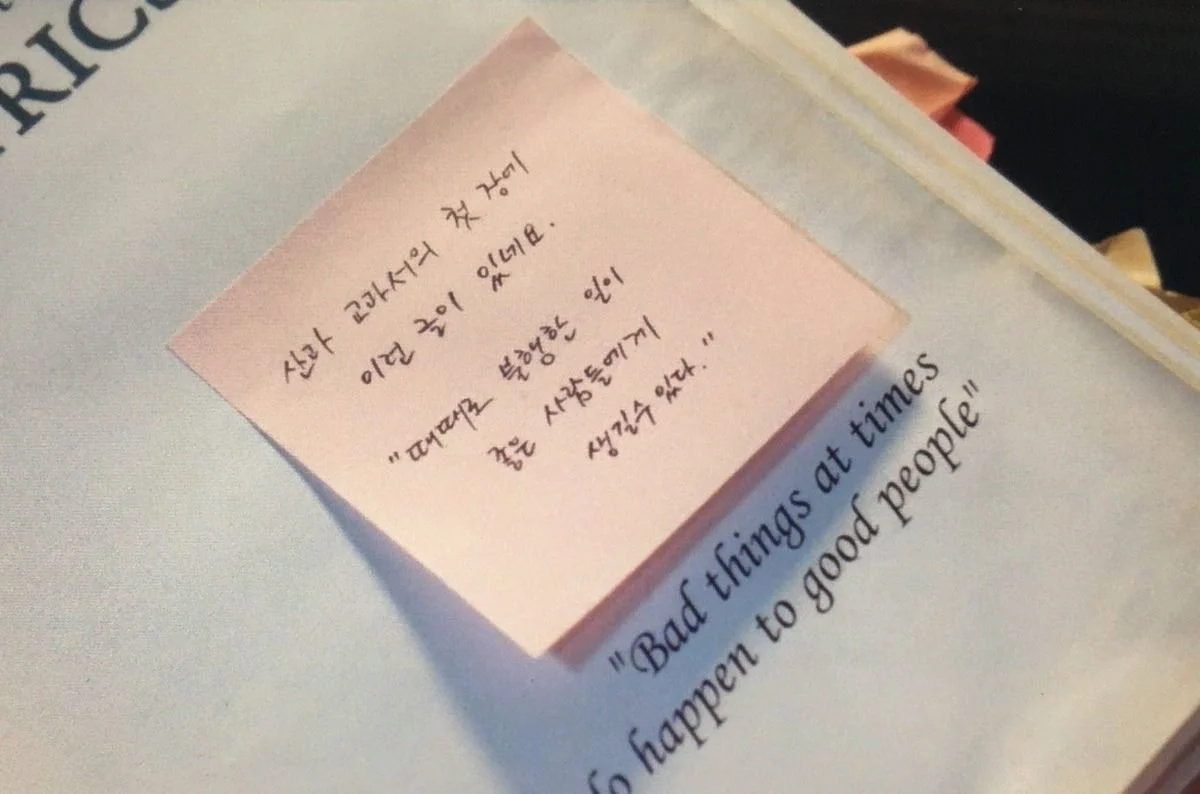 RICS
산과 교과서의 첫 장에
이런 글이 있네요.
"때때로 불행한 일이
좋은 사람들에게
생길수 있다."
"Bad things at times
do happen to good people"